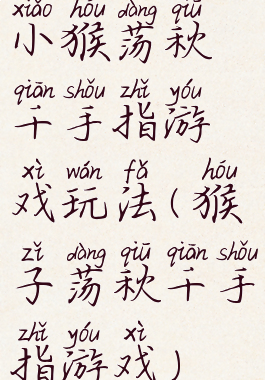 xiǎo hóu dàng qiū
小猴荡秋
qiān shǒu zhǐ yóu
千手指游
xì wán fǎ hóu
戏玩法(猴
zǐ dàng qiū qiān shǒu
子荡秋千手
zhǐ yóu xì
指游戏)